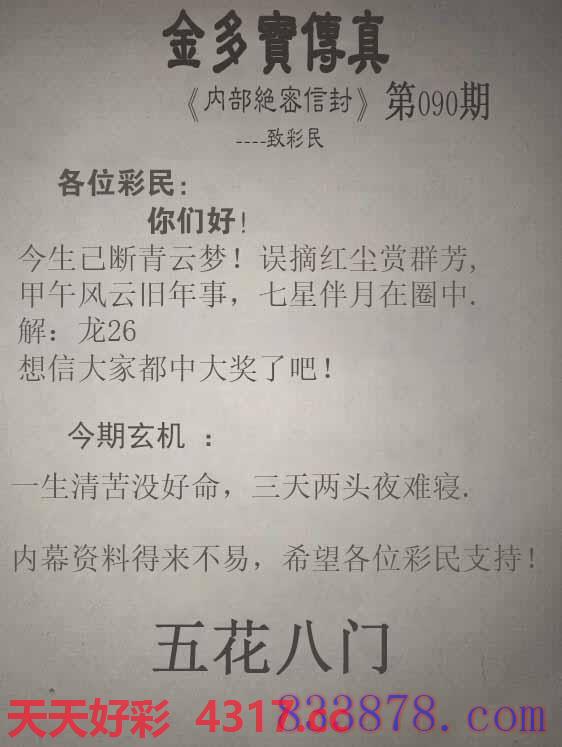 金多寳傳真
《内部絶密信封》第090期
----致彩民
各位彩民:
你们好!
今生已断青云梦! 误摘红尘赏群芳,
甲午风云旧年事，七星伴月在圈中.
解：龙26
想信大家都中大奖了吧!
今期玄机 :
一生清苦没好命，三天两头夜难寝.
内幕资料得来不易，希望各位彩民支持!
五花八门
天天好彩 4317.cc
833878.com